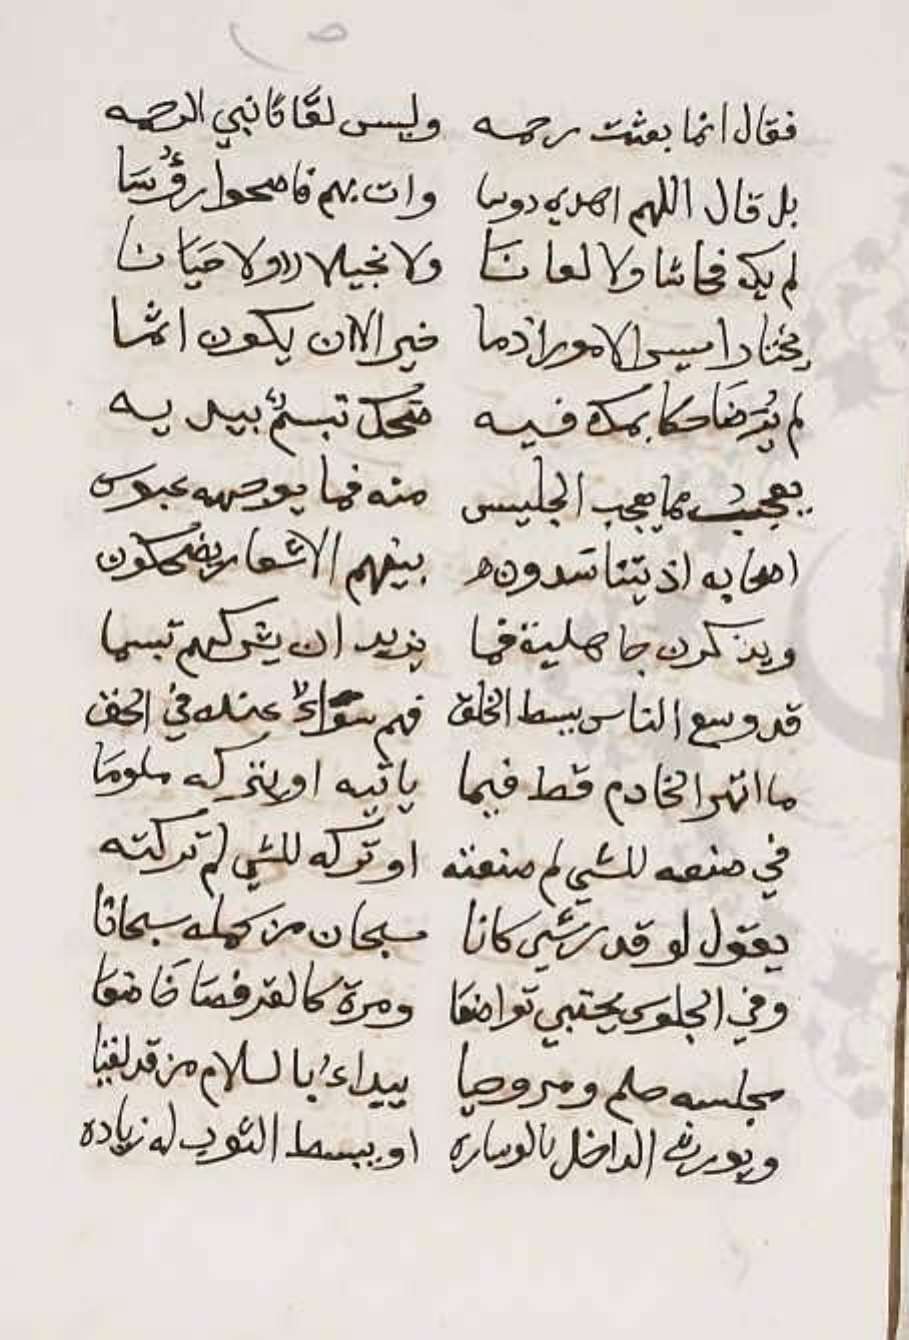 فقال انما بعثت رحمه وليس لعَّانًا نبي الرحمه
بل قال اللهم اهد دوسا وات بهم فاصحوا رؤسَا
لم يكن فحاشا ولا لعانَا ولا بخيلا ولا حيَانا
يختار ايسر الامور اذ ما خير الا ان يكون اثما
لم يُرَ ضَاحكا بملء فيه ضحك تبسمٌ يبديه
يعجب مما يعجب الجليس منه فما بوجهه عبوس
اصحابه اذ يتناشدون بينهم الاشعار يضحكون
ويذكرون جاهلية فما يزيد ان يشركهم تبسما
قد وسع الناس ببسط الخلق فهم سَواءٌ عنده في الحق
ما انتهر الخادم قط فيما ياتيه او يتركه ملومَا
في صنعه للشي لم صنعته او تركه للشي لم تركته
يقول لو قدر شي كانا سبحان من كمله سبحانا
وفي الجلوس يحتبي تواضعَا ومرة كالقرفصَا خَاضعَا
مجلسه حلم و وحيا يبداءُ بالسلام من قد لقيَا
ويوثر الداخل بالوساده او يبسط الثوب له زياده